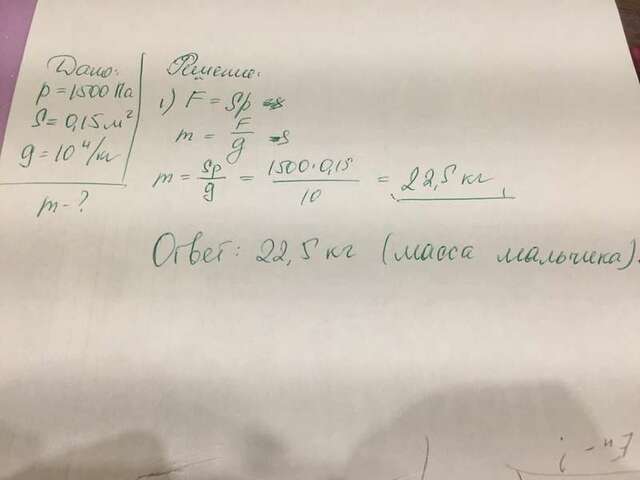 Дано:
p = 1500 Па
S = 0,15 м²
g = 10 Н/кг
m - ?
Решение:
1) F = Sp
m = F/g
m = Sp/g = 1500·0,15/10 = 22,5 кг
Ответ: 22,5 кг (масса мальчика).